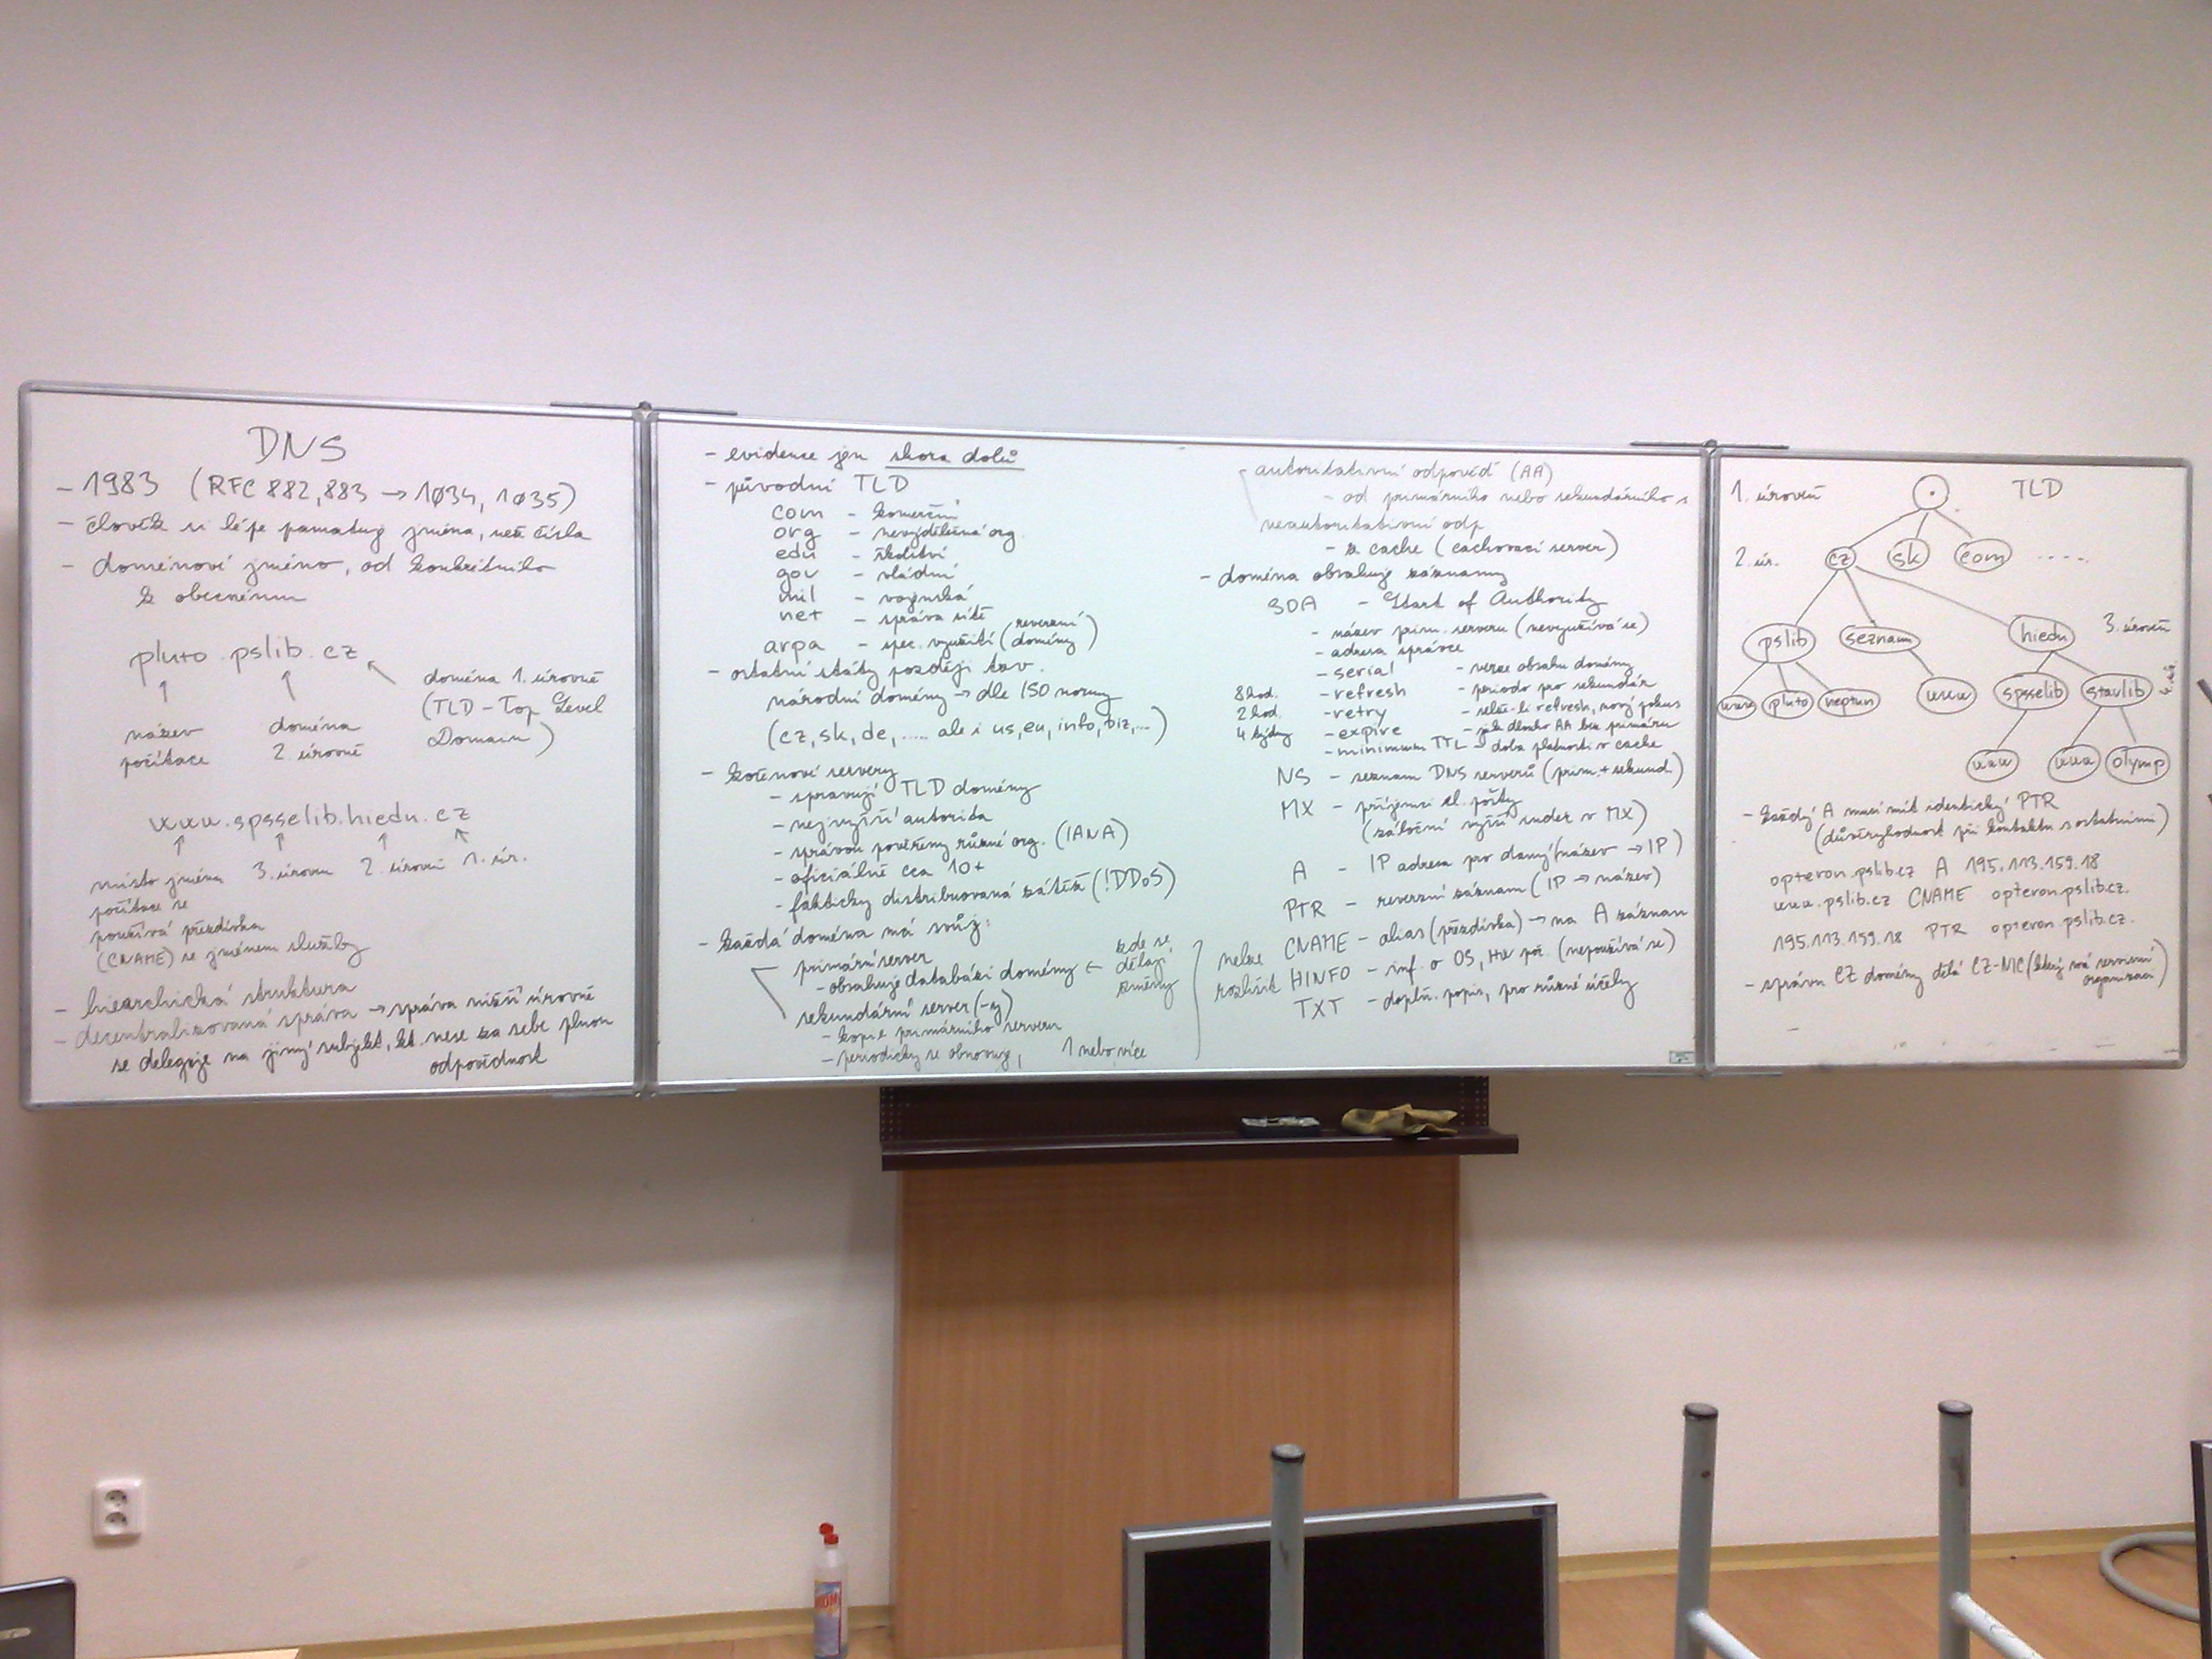 DNS
- 1983 (RFC 882,883 → 1034, 1035)
- člověk si lépe pamatuje jména, než čísla
- doménové jméno, od konkrétního
k obecnému
pluto.pslib.cz
název
počítače
doména
2. úrovně
doména 1. úrovně
(TLD - Top Level
Domain)
www.spsselib.hiedu.cz
místo jména
počítače se
používá přezdívka
(CNAME) se jménem služby
3. úrovně
2. úrovně
1. úr.
- hiearchická struktura
- decentralizovaná správa → správa nižší úrovně
se deleguje na jiný subjekt, kt. nese za sebe plnou
odpovědnost
- evidence jen shora dolů
- původní TLD
com - komerční
org - nevýdělečná org.
edu - školství
gov - vládní
mil - vojenská
net - správa sítě
arpa - spec. využití (reverzní domény)
- ostatní státy později tzv.
národní domény → dle ISO normy
(cz, sk, de, ..... ale i us, eu, info, biz, ...)
- kořenové servery
- spravují TLD domény
- nejvyšší autorita
- správou pověřeny různé org. (IANA)
- oficiálně cca 10+
- fakticky distribuovaná zátěž (!DDoS)
- každá doména má svůj:
primární server
- obsahuje databázi domény ← zde se
dělají
změny
sekundární server (-y)
- kopie primárního serveru
- periodicky se obnovuje, 1 nebo více
nelze
rozlišit
autoritativní odpověď (AA)
- od primárního nebo sekundárního s
neautoritativní odp
- z cache (cachovací server)
- doména obsahuje záznamy
SOA - Start of Authority
- název prim. serveru (nevyužívá se)
- adresa správce
- serial - verze obsahu domény
8 hod. - refresh - perioda pro sekundár
2 hod. - retry - selže-li refresh, nový pokus
4 týdny - expire - jak dlouho AA bez primáru
- minimum TTL - doba platnosti v cache
NS - seznam DNS serverů (prim. + sekund.)
MX - příjemci el. pošty
(záložní vyšší v MX)
A - IP adresa pro daný (název → IP)
PTR - reverzní záznam (IP → název)
CNAME - alias (přezdívka) → na A záznam
HINFO - inf. o OS, HW poč (nepoužívá se)
TXT - doplň. popis, pro různé účely
1. úroveň
TLD
2. úr.
cz
sk
com
....
pslib
seznam
hiedu
3. úroveň
www
pluto
neptun
www
spsselib
stavlib
www
www
olymp
- každý A musí mít identický PTR
(důvěryhodnost při kontaktu s ostatními)
opteron.pslib.cz A 195.113.159.18
www.pslib.cz CNAME opteron.pslib.cz.
195.113.159.18 PTR opteron.pslib.cz.
- správu CZ domény dělá CZ-NIC (který má servisní
organizaci)